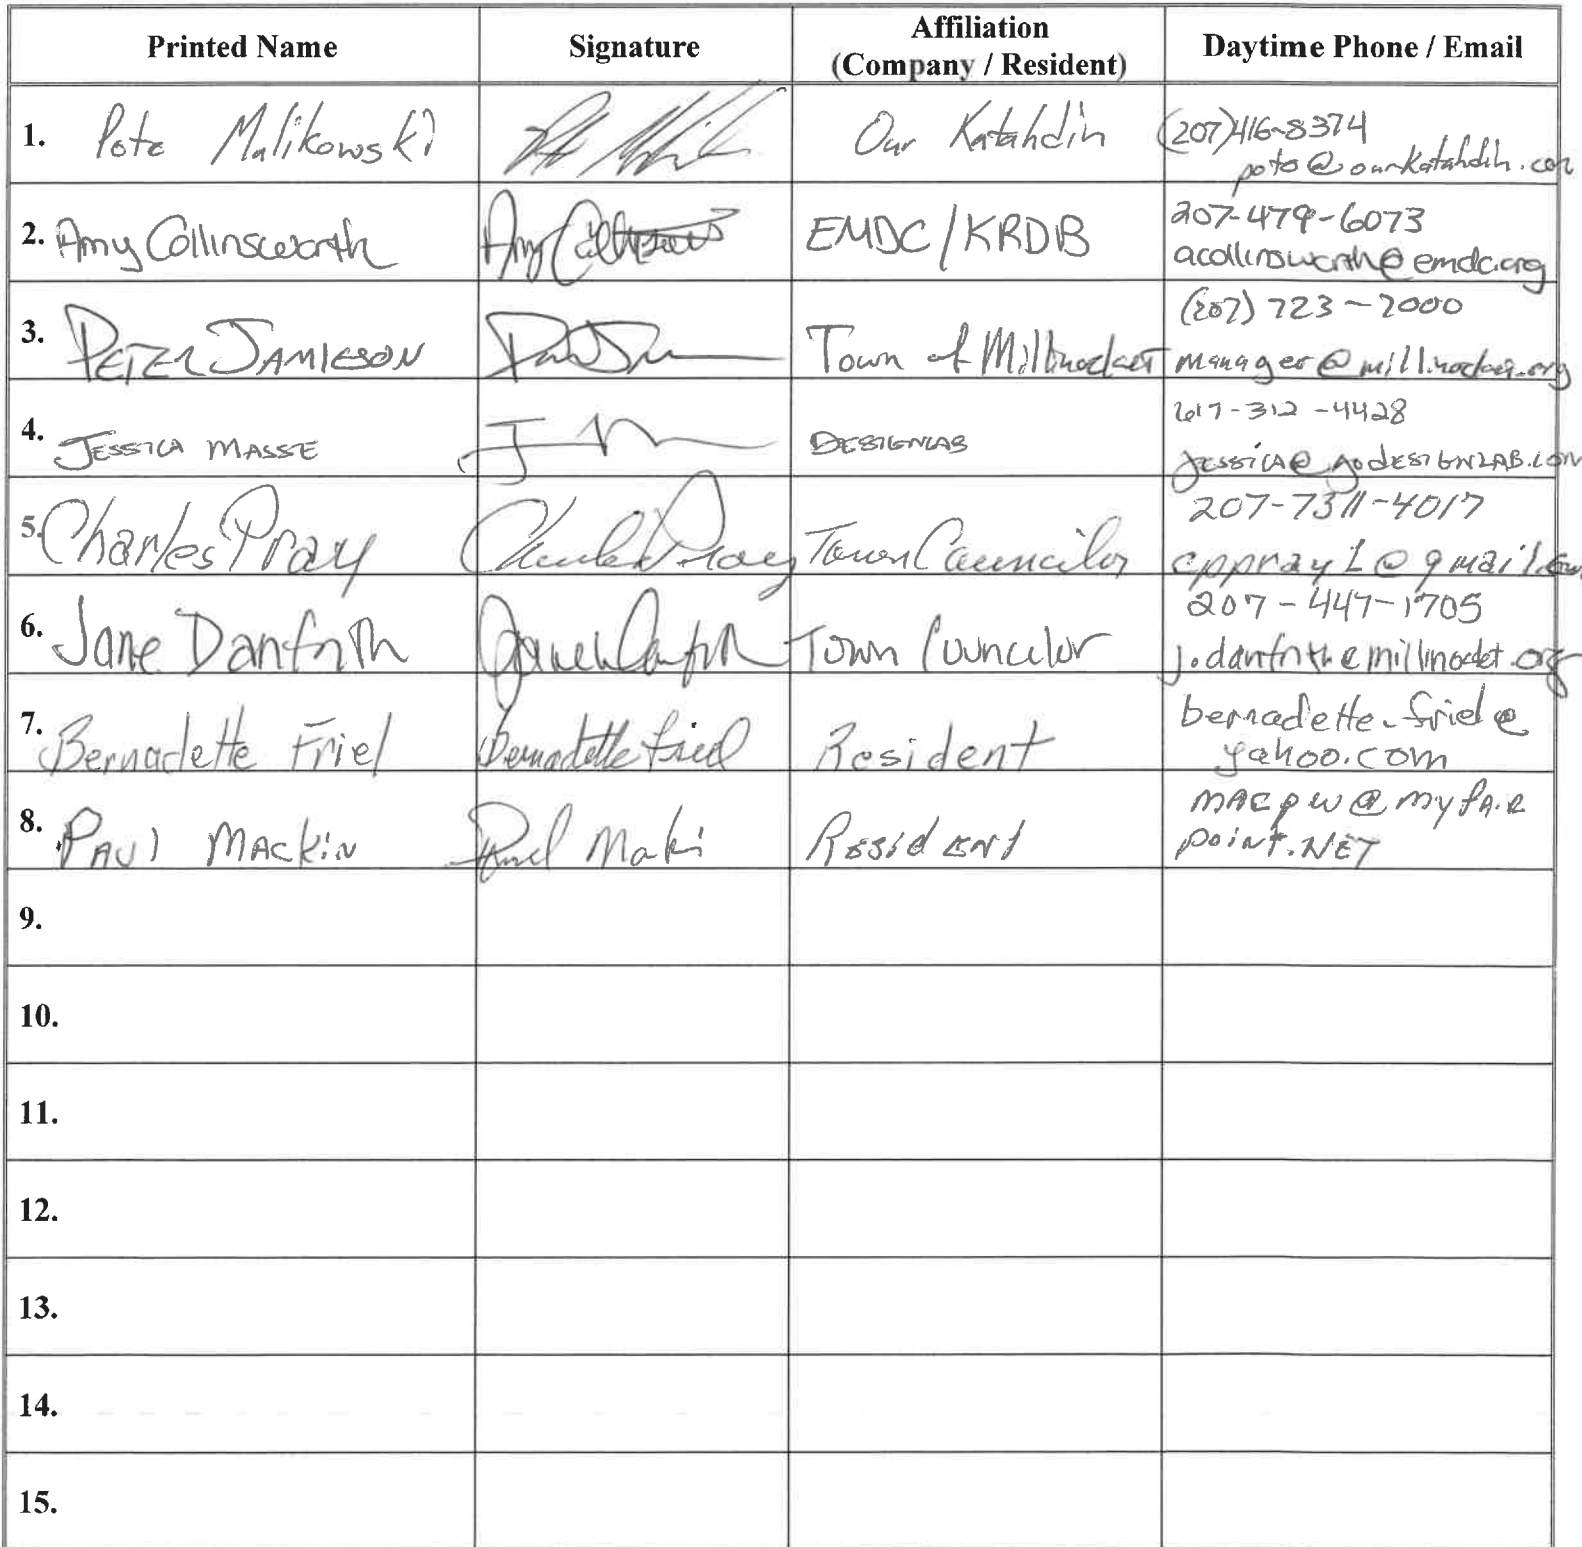 Printed Name
Signature
Affiliation
(Company / Resident)
Daytime Phone / Email
1. Pote Malikowski
Our Katahdin
(207)416-8374
pote@ourkatahdin.com
2. Amy Collinsworth
EMDC/KRDB
207-479-6073
acollinsworth@emdc.org
3. PETER JAMIESON
Town of Millinocket
(207) 723-7000
manager@millinocket.org
4. JESSICA MASSE
DESIGNLAB
617-312-4428
JESSICA@goDESIGNLAB.COM
5. Charles Pray
Charles Pray
Town Councilor
cppray1@gmail.com
6. Jane Danforth
Town Councelor
207-447-1705
j.danforth@millinocket.org
7. Bernadette Friel
Bernadette Friel
Resident
bernadette-friel@
yahoo.com
8. PAUl MACKiN
Resident
MACPW@MYfAiR
POiNT.NET
9.
10.
11.
12.
13.
14.
15.